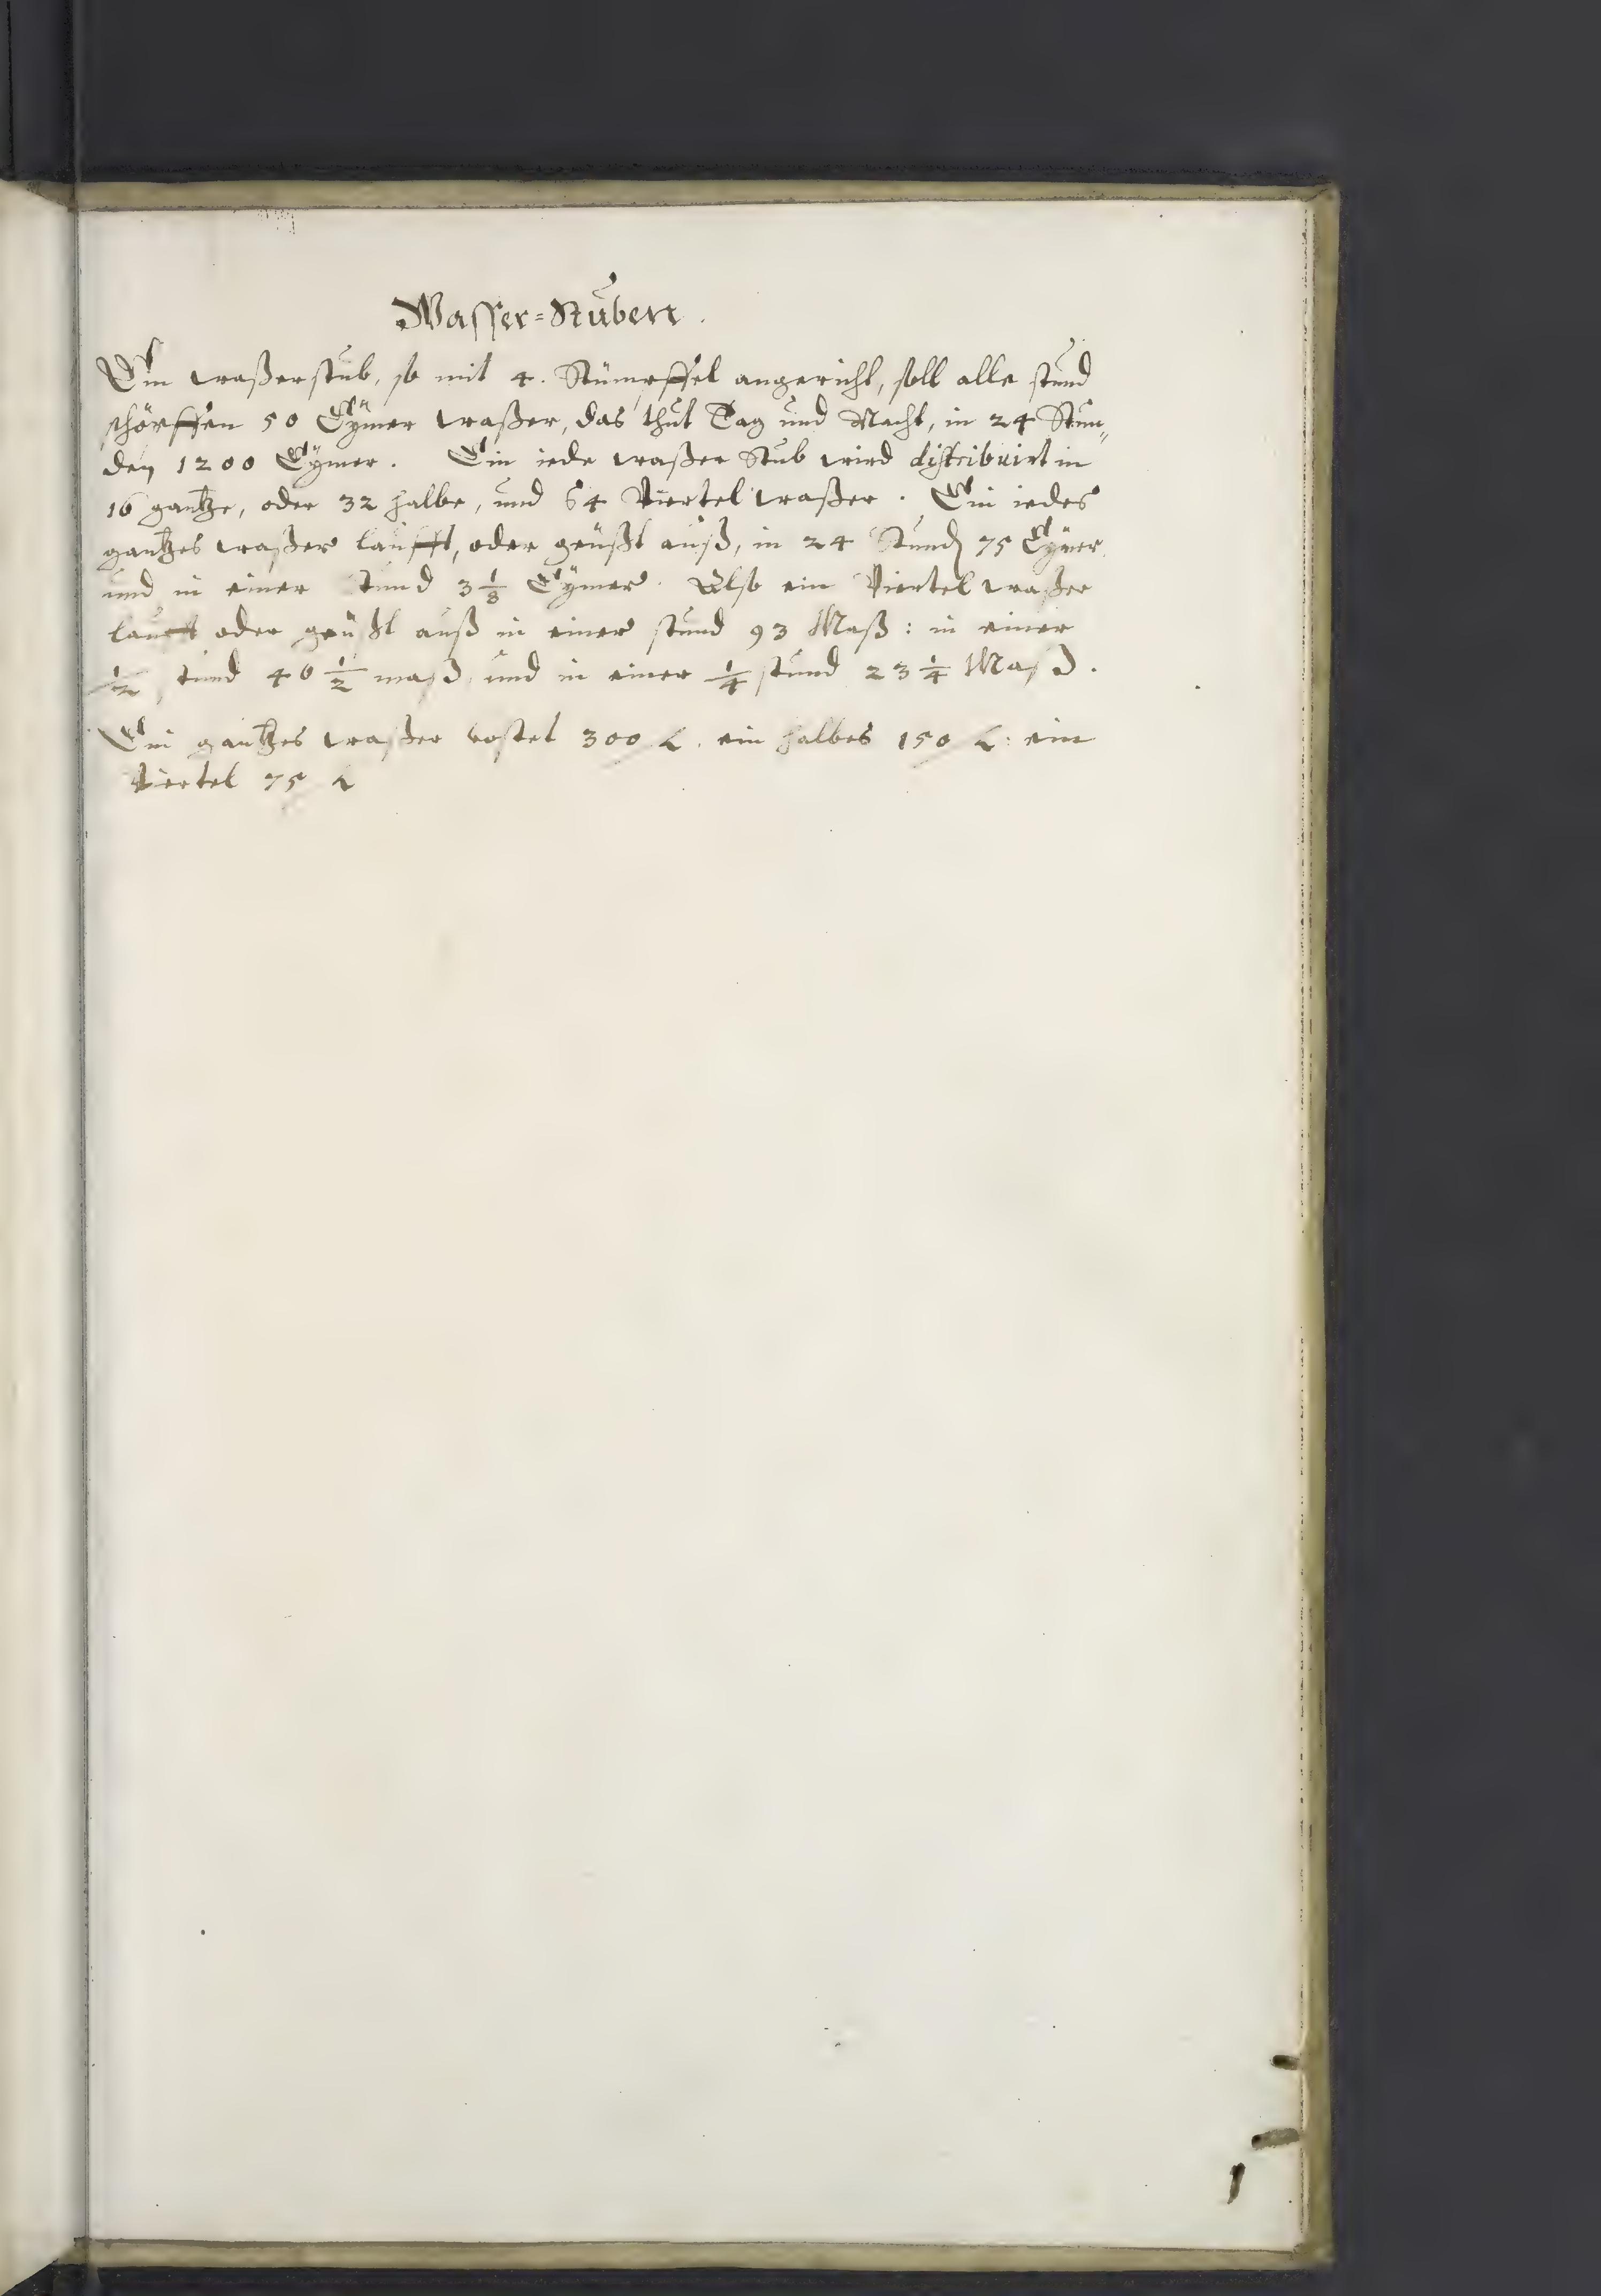 Wasser=Stuben.
Ein waßerstub, so mit 4. Stümpffel angericht, soll alle stund
schöpffen 50 Eÿmer waßer, das thut Tag und Nacht, in 24 Stun„
den 1200 Eÿmer. Ein iede waßer Stub wird distribuirt in
16 gantze, oder 32 halbe, und 64 Viertel waßer. Ein iedes
gantzes waßer laufft, oder geüßt auß, in 24 Stund 75 Eÿmer
und in einer stund 3 1/8 Eÿmer. Also ein Viertel waßer
laufft oder geüßt auß in einer stund 93 Maß: in einer
1/2 stund 46 1/2 maß, und in einer 1/4 stund 23 1/4 Maß.
Ein gantzes waßer costet 300 f. ein halbes 150 f: ein
Viertel 75 f